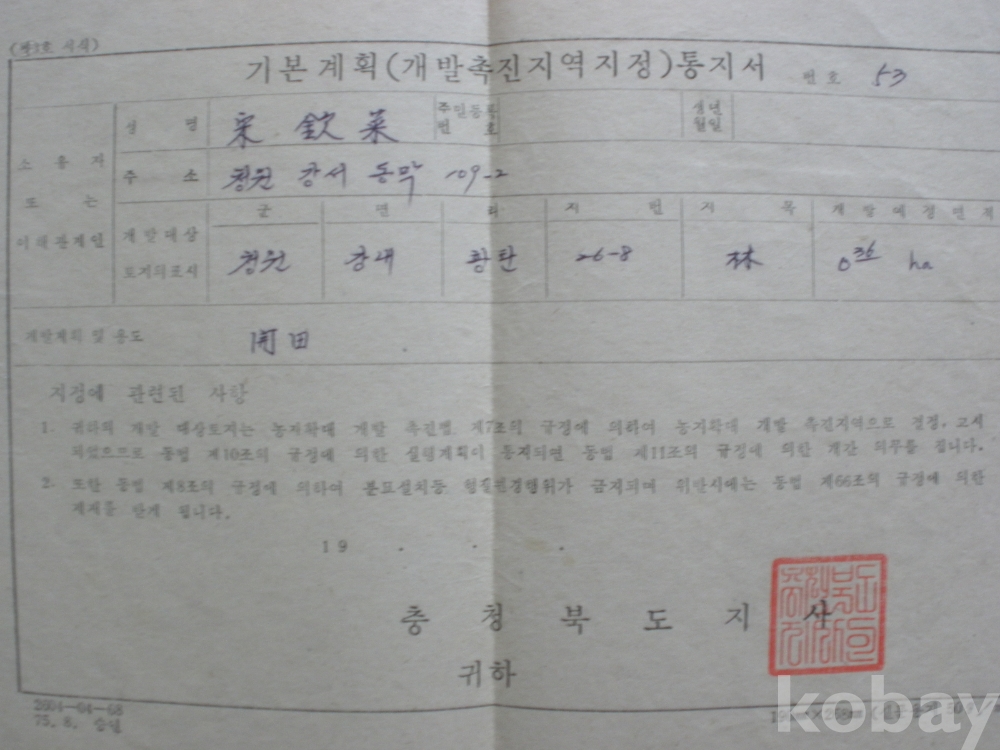 (제3호 서식)
기본계획(개발촉진지역지정)통지서 번호 53
성 명 宋 欽 菜 주민등록번호 생년월일
소유자 또는 이해관계인
주 소 청원 강서 동막 109-2
군 면 리 지 번 지 목 개발예정면적
개발대상 토지의표시 청원 강내 황탄 26-8 林 0.36 ha
개발계획 및 용도 開田
지정에 관련된 사항
1. 귀하의 개발 대상토지는 농지확대 개발 촉진법 제7조의 규정에 의하여 농지확대 개발 촉진지역으로 결정, 고시
되었으므로 동법 제10조의 규정에 의한 실행계획이 통지되면 동법 제11조의 규정에 의한 개간 의무를 집니다.
2. 또한 동법 제8조의 규정에 의하여 분묘설치등 형질변경행위가 금지되며 위반시에는 동법 제66조의 규정에 의한
제재를 받게 됩니다.
19 . . .
충 청 북 도 지 사
귀하
2604-04-68
75. 8. 승인
kobay